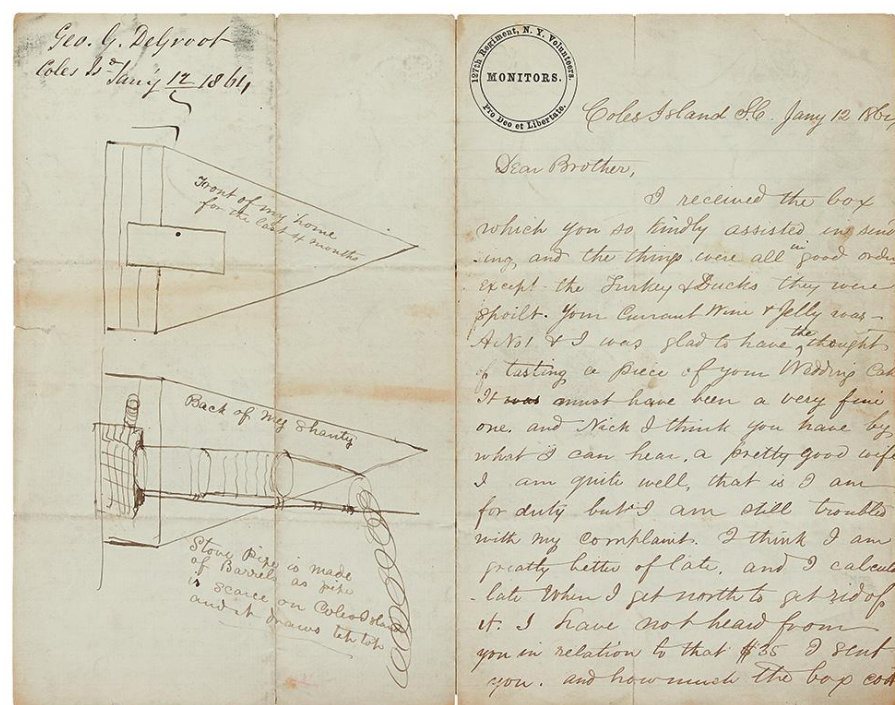 Geo. G. DeGroot
Coles Isd Jany 12 1864
Front of my home
for the last 4 months
Back of my Shanty
Stove pipe is made
of Barrels as pipe
is scarce on Coles Island
and it draws tip top
127th Regiment, N. Y. Volunteers.
MONITORS.
Pro Deo et Libertate.
Coles Island S.C. Jany 12 186
Dear Brother,
I received the box
which you so kindly assisted in send
-ing, and the things were all in good orde
except the Turkey & Ducks they were
spoilt. Your Currant Wine & Jelly was
A No 1 & I was glad to have the thought
of tasting a piece of your Wedding Cak
It was must have been a very fine
one. and Nick I think you have by
what I can hear, a pretty good wife
I am quite well, that is I am
for duty but I am still troubled
with my complaint. I think I am
greatly better of late. and I calcu
-late when I get north to get rid of
it. I have not heard from
you in relation to that $35 I sent
you. and how much the box cost